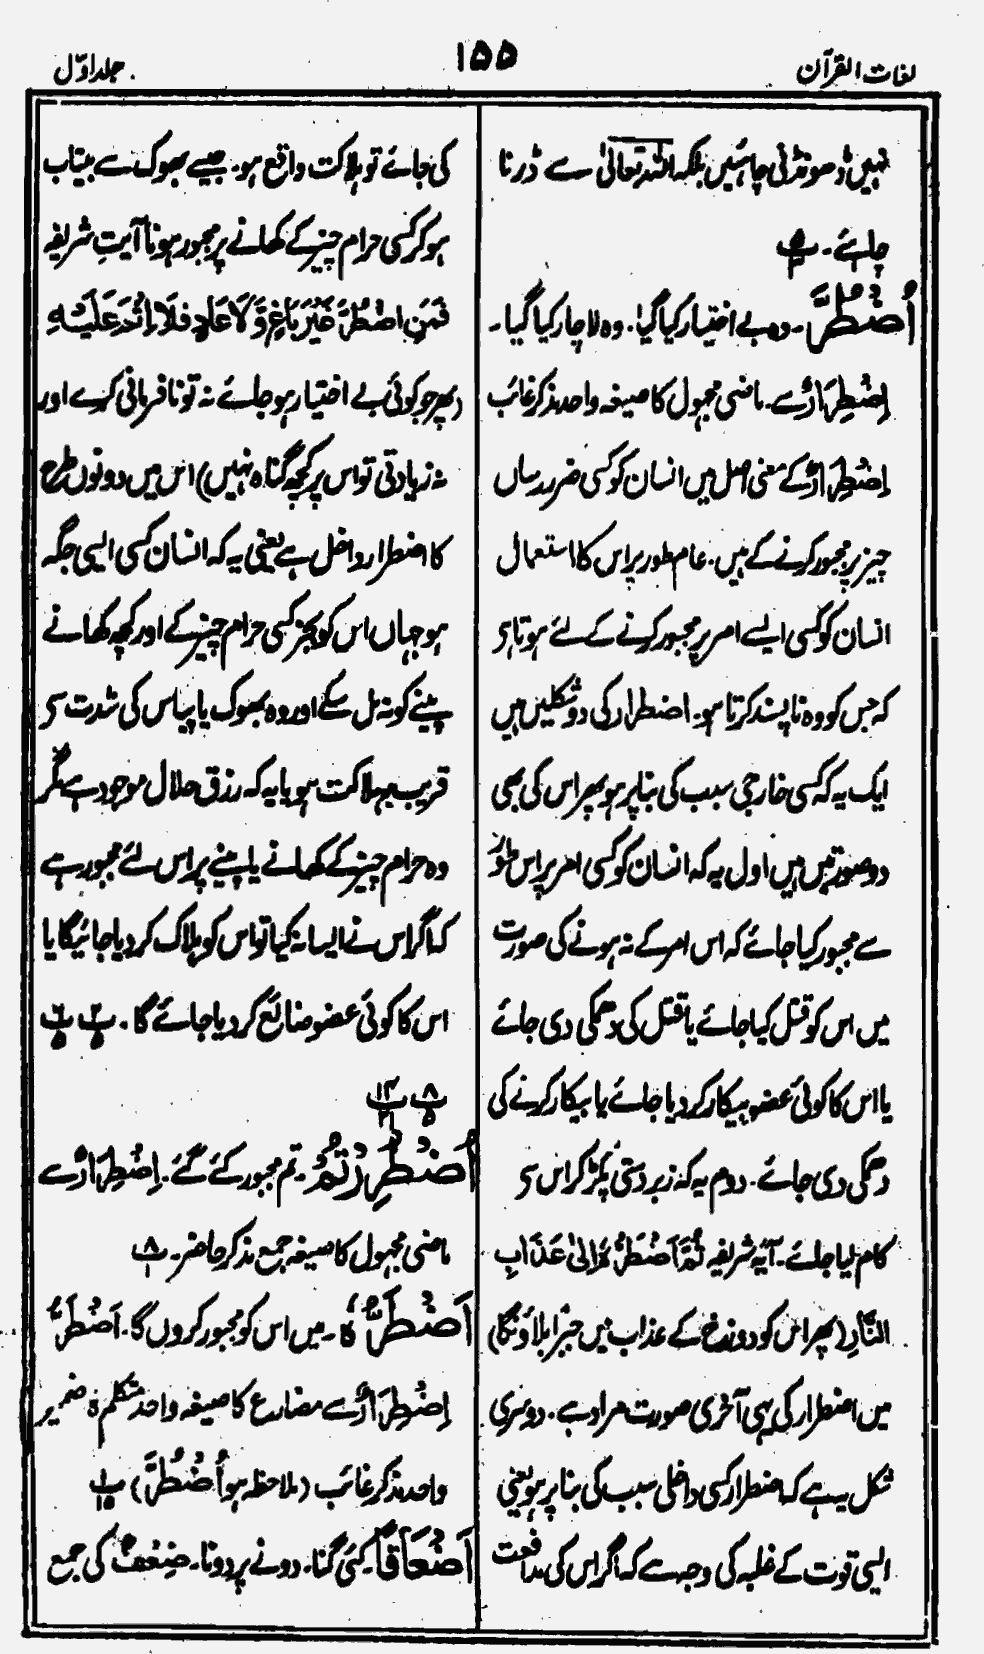 لغات القرآن
۱۵۵
جلد اوّل
نہیں ڈھونڈنی چاہئیں بلکہ اللہ تعالیٰ سے ڈرنا
چاہئے۔
اُضْطُرَّ۔ وہ بے اختیار کیا گیا۔ وہ لاچار کیا گیا۔
اِضْطِرَارٌ سے۔ ماضی مجہول کا صیغہ واحد مذکر غائب
اِضْطِرَارٌ کے معنی اصل میں انسان کو کسی ضرر رساں
چیز پر مجبور کرنے کے ہیں۔ عام طور پر اس کا استعمال
انسان کو کسی ایسے امر پر مجبور کرنے کے لئے ہوتا ہی
کہ جس کو وہ ناپسند کرتا ہو۔ اضطرار کی دو شکلیں ہیں
ایک یہ کہ کسی خارجی سبب کی بنا پر ہو پھر اس کی بھی
دو صورتیں ہیں اول یہ کہ انسان کو کسی امر پر اس طور
سے مجبور کیا جائے کہ اس امر کے نہ ہونے کی صورت
میں اس کو قتل کیا جائے یا قتل کی دھمکی دی جائے
یا اس کا کوئی عضو بیکار کر دیا جائے یا بیکار کرنے کی
دھمکی دی جائے۔ دوم یہ کہ زبردستی پکڑ کر اس سی
کام لیا جائے۔ آیہ شریفہ ثُمَّ اَضْطَرُّهٗ اِلیٰ عَذَابِ
النَّارِ (پھر اس کو دوزخ کے عذاب میں جبراً بلاؤنگا)
میں اضطرار کی یہی آخری صورت مراد ہے۔ دوسری
شکل یہ ہے کہ اضطرار کسی داخلی سبب کی بنا پر ہو یعنی
ایسی قوت کے غلبہ کی وجہ سے کہ اگر اس کی مدافعت
کی جائے تو ہلاکت واقع ہو۔ جیسے بھوک سے بیتاب
ہو کر کسی حرام چیز کے کھانے پر مجبور ہونا آیتِ شریفہ
فَمَنِ اضْطُرَّ غَیْرَ بَاغٍ وَّلَا عَادٍ فَلَا اِثْمَ عَلَیْهِ
(پھر جو کوئی بے اختیار ہو جائے نہ تو نافرمانی کرے اور
نہ زیادتی تو اس پر کچھ گناہ نہیں) اس میں دونوں طرح
کا اضطرار داخل ہے یعنی یہ کہ انسان کسی ایسی جگہ
ہو جہاں اس کو بجز کسی حرام چیز کے اور کچھ کھانے
پینے کو نہ مل سکے اور وہ بھوک یا پیاس کی شدت سی
قریب بہلاکت ہو یا یہ کہ رزق حلال موجود ہے مگر
وہ حرام چیز کے کھانے یا پینے پر اس لئے مجبور ہے
کہ اگر اس نے ایسا نہ کیا تو اس کو ہلاک کر دیا جائیگا یا
اس کا کوئی عضو ضائع کر دیا جائے گا۔
اُضْطُرِرْتُمْ۔ تم مجبور کئے گئے۔ اِضْطِرَارٌ سے
ماضی مجہول کا صیغہ جمع مذکر حاضر۔
اَضْطَرُّهٗ۔ میں اس کو مجبور کروں گا۔ اَضْطَرُّ
اِضْطِرَارٌ سے مضارع کا صیغہ واحد متکلم ہٗ ضمیر
واحد مذکر غائب (ملاحظہ ہو اُضْطُرَّ)
اَضْعَافًا۔ کئی گنا۔ دونے پر دونا۔ ضِعْفٌ کی جمع